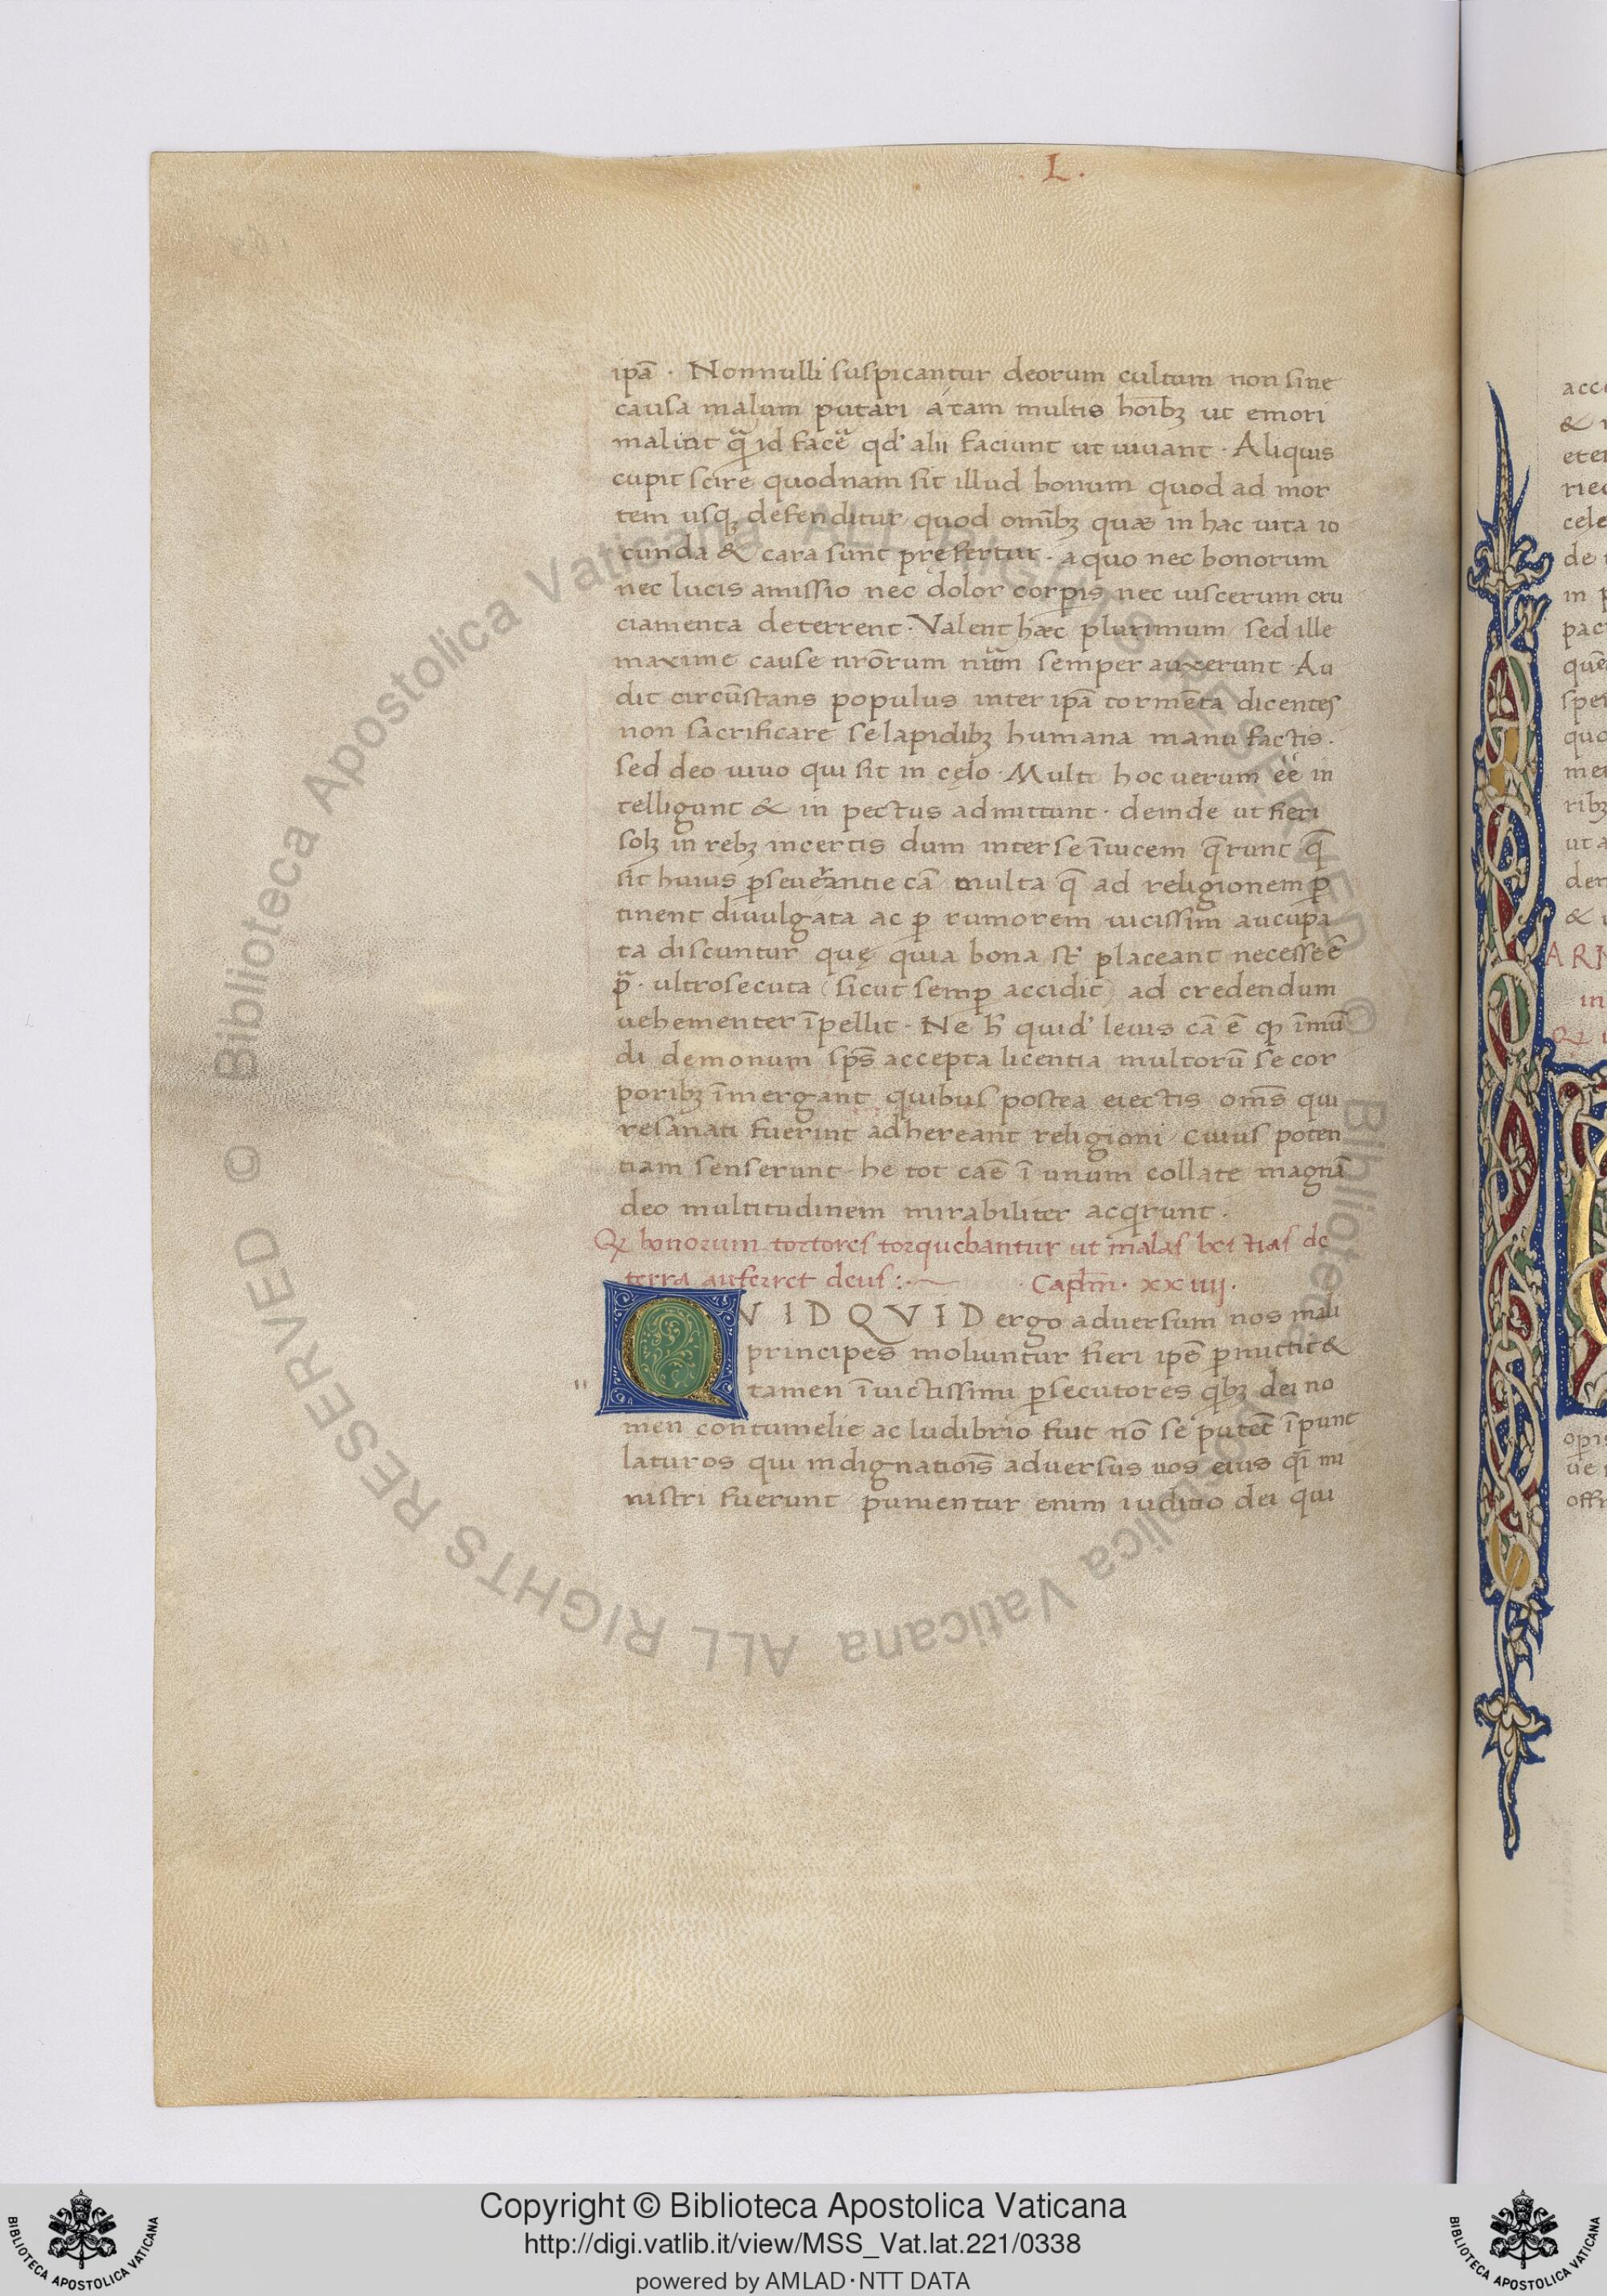 . L .
ipā · Nonnulli suspicantur deorum cultum non sine
causa malum putari a tam multis hoībꝫ ut emori
malint qͣ̄ id facẽ qd' alii faciunt ut uiuant · Aliquis
cupit scire quodnam sit illud bonum quod ad mor
tem usqꝫ defenditur quod omībꝫ quæ in hac uita io
cunda & cara sunt prefertur · a quo nec bonorum
nec lucis amissio nec dolor corpis nec uiscerum cru
ciamenta deterrent · Valent hæc plurimum sed ille
maxime cause nrōrum nūm semper auxerunt · Au
dit circūstans populus inter ipā tormēta dicentes
non sacrificare se lapidibꝫ humana manu factis ·
sed deo uiuo qui sit in cęlo · Multi hoc uerum eē in
telligunt & in pectus admittunt · deinde ut fieri
solꝫ in rebꝫ incertis dum inter se īuicem q̄runt q̄
sit huius ꝑseuerantie cā multa q̄ ad religionem ꝑ
tinent diuulgata ac ꝑ rumorem uicissim aucupa
ta discuntur quę quia bona st̄ placeant necesse ē
p̄ · ultro secuta (sicut semꝑ accidit) ad credendum
uehementer īpellit · Ne h̄ quid' leuis cā ē ꝙ īmū
di demonum sp̄s accepta licentia multorū se cor
poribꝫ īmergant quibus postea eiectis om̄s qui
resanati fuerint adhereant religioni cuius poten
tiam senserunt he tot caē ī unum collate magnā
deo multitudinem mirabiliter acqͥrunt ·
Qꝫ bonorum tortores torquebantur ut malas bestias de
terra auferret deus : · Capl̄m · xxiiii ·
QVIDQVID ergo aduersum nos mali
principes moliuntur fieri ipē ꝑmittit &
" tamen īuictissimi ꝑsecutores qͥbꝫ dei no
men contumelie ac ludibrio fuit nō se putēt īpunt
laturos qui indignatiōis aduersus nos eius qͣī mi
nistri fuerunt punientur enim iuditio dei qui
ARN
in
Copyright © Biblioteca Apostolica Vaticana
http://digi.vatlib.it/view/MSS_Vat.lat.221/0338
powered by AMLAD·NTT DATA
BIBLIOTECA APOSTOLICA VATICANA
BIBLIOTECA APOSTOLICA VATICANA
© Biblioteca Apostolica Vaticana ALL RIGHTS RESERVED
© Biblioteca Apostolica Vaticana ALL RIGHTS RESERVED